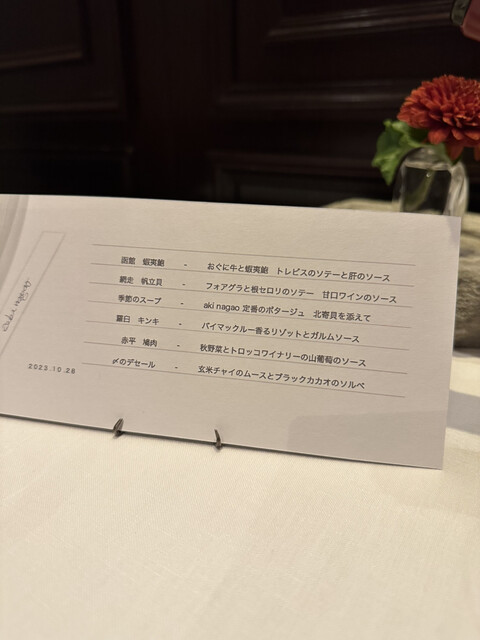 函館　蝦夷鮑　-　おぐに牛と蝦夷鮑　トレビスのソテーと肝のソース
網走　帆立貝　-　フォアグラと根セロリのソテー　甘口ワインのソース
季節のスープ　-　aki nagao 定番のポタージュ　北寄貝を添えて
羅臼　キンキ　-　バイマックルー香るリゾットとガルムソース
赤平　鳩肉　-　秋野菜とトロッコワイナリーの山葡萄のソース
〆のデセール　-　玄米チャイのムースとブラックカカオのソルベ
aki nagao
2023.10.28